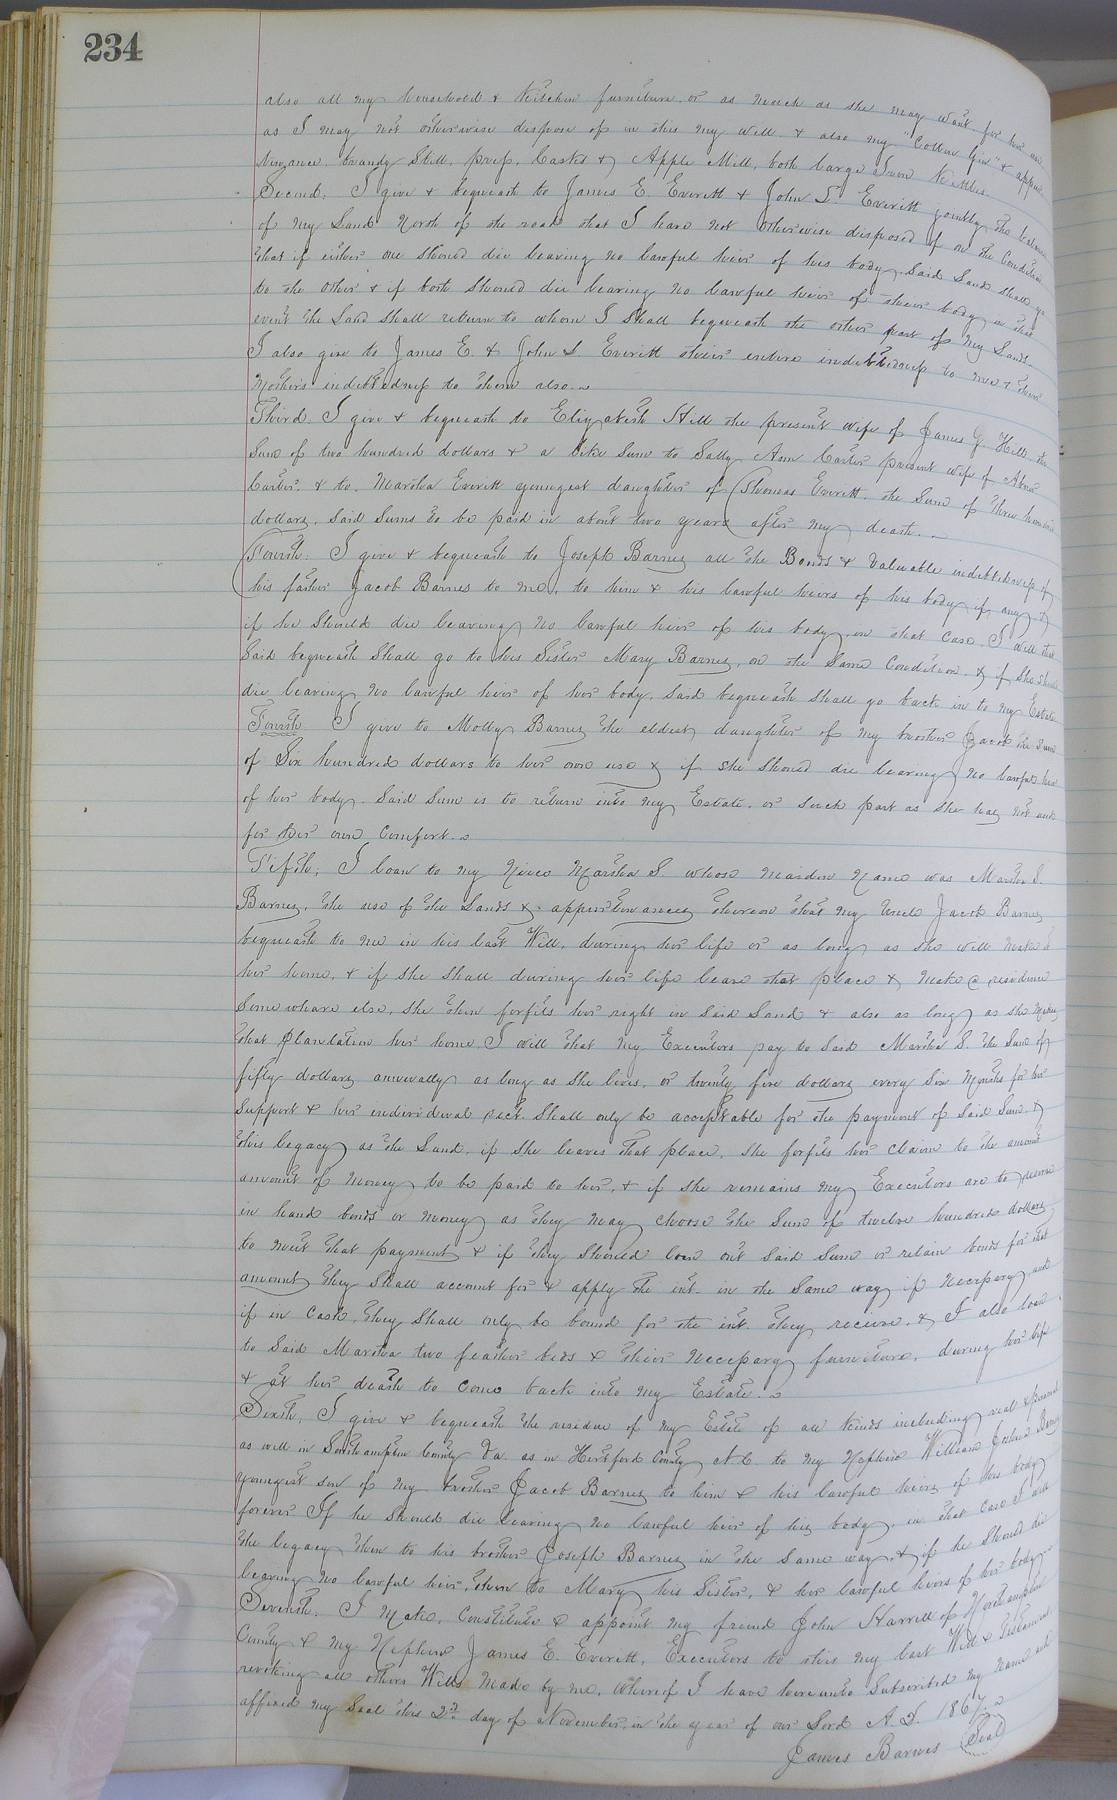 234
also all my household & Kitchen furniture, or as much as she may want for her use
as I may not otherwise dispose of in this my will, & also my "Cotton Gin" & appur
tenance, brandy Still, press, Casks & Apple Mill, both large Iron Kettles.
Second, I give & bequeath to James E Everitt & John S. Everitt jointly the balance
of my Land North of the road that I have not otherwise disposed of on the Condition
that if either one Should die leaving no lawful heir of his body, Said Land shall go
to the other & if both Should die leaving no lawful heirs of their body in that
event the Land Shall return to whom I Shall bequeath the other part of my Land.
I also give to James E. & John S Everitt their entire indebtedness to me & their
Mothers indebtedness to them also.
Third, I give & bequeath to Elizabeth Hill the present wife of James G. Hill, the
Sum of two hundred dollars & a like Sum to Sally Ann Carter present wife of Abner
Carter, & to Martha Everitt youngest daughter of Thomas Everitt, the Sum of three hundred
dollars, Said Sums to be paid in about two years after my death.
Fourth. I give & bequeath to Joseph Barnes all the Bonds & valuable indebtedness of
his father Jacob Barnes to me, to him & his lawful heirs of his body if any &
if he Should die leaving no lawful heir of his body, in that case, I will that
Said bequeath Shall go to his Sister Mary Barnes, on the Same Condition, & if She Should
die leaving no lawful heir of her body, Said bequeath Shall go back in to my Estate
Fourth I give to Molly Barnes the eldest daughter of my brother Jacob the Sum
of Six hundred dollars to her own use & if she Should die leaving no lawful heir
of her body, Said Sum is to return into my Estate, or Such part as she has not used
for her own Comfort.
Fifth, I loan to my Niece Martha S. whose maiden name was Martha S.
Barnes, the use of the Lands & appurtenances thereon that my Uncle Jacob Barnes
bequeath to me in his last Will, during her life or as long as she will make it
her home, & if she Shall during her life leave that place & make a residence
Somewhere else, She then forfits her right in Said Land & also as long as she makes
that Plantation her home, I will that my Executors pay to Said Martha S. the Sum of
fifty dollars annually as long as She lives, or twenty five dollars every Six Months for her
Support & her individual rect. Shall only be acceptable for the payment of Said Sum &
this legacy as the Land, if She leaves that place, She forfits her claim to the amount
amount of Money to be paid to her, & if she remains my Executors are to reserve
in hand bonds or money as they may choose the Sum of twelve hundred dollars
to meet that payment & if they Should loan out Said Sum or retain bonds for that
amount they Shall account for & apply the int. in the Same way if Necessary and
if in Cash, they Shall only be bound for the int. they recieve, & I also loan
to Said Martha two feather beds & their Necessary furniture, during her life
& at her death to come back into my Estate.
Sixth, I give & bequeath the residue of my Estate of all Kinds including real & personal
as well in Southampton County Va. as in Hertford County N.C. to my Nephew William Joshua Barnes
youngest son of my brother Jacob Barnes to him & his lawful heirs of his body
forever If he Should die leaving no lawful heir of his body, in that case I will
the legacy then to his brother Joseph Barnes in the Same way, & if he Should die
leaving no lawful heir, then to Mary his Sister, & her lawful heirs of her body.
Seventh. I Make, Constitute & appoint my friend John Harrell of Northampton
County & my Nephew James E. Everitt, Executors to this my last Will & Testament
revoking all others Wills Made by me. Whereof I have hereunto Subscribed my name and
affixed my Seal this 2nd. day of November, in the year of our Lord A.D. 1867.
James Barnes (Seal)